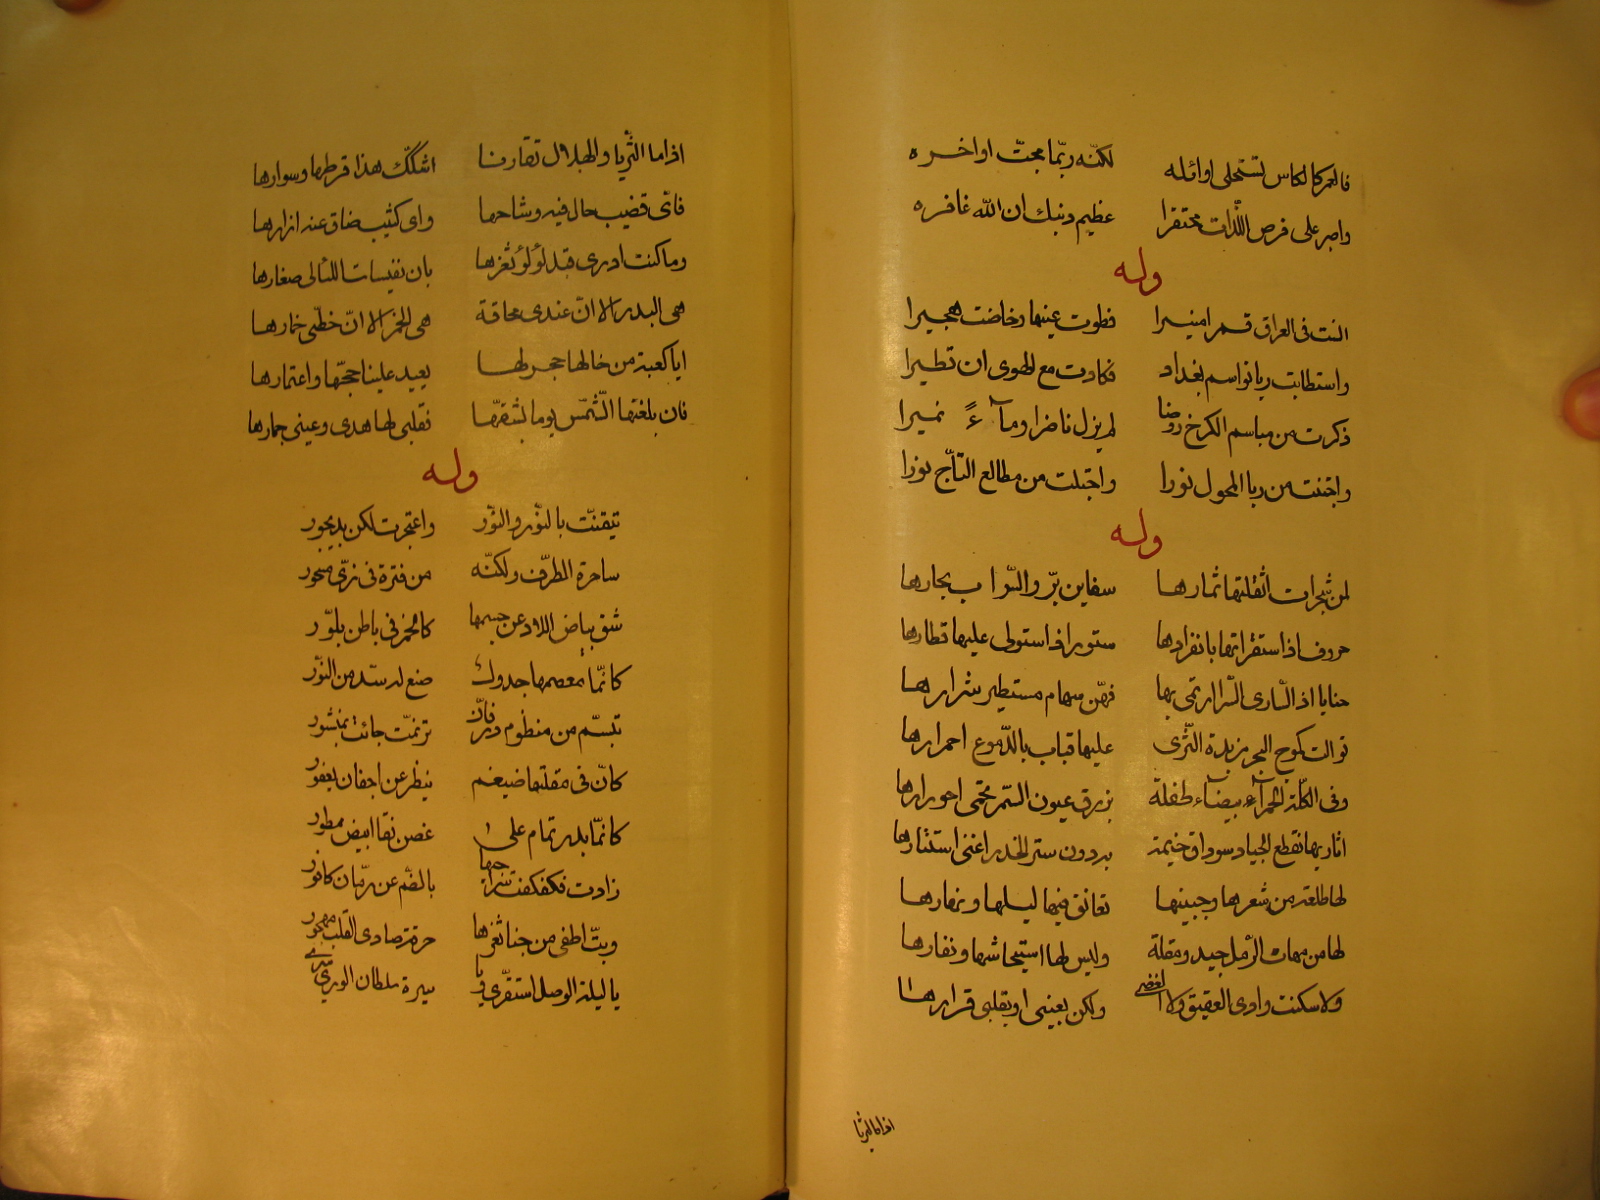 فالعمر كالكاس تستحلى اوائله لكنّه ربّما مجتّ اواخره
واجر على فرص اللّذات محتقرا عظيم دنبك ان الله غافره
وله
الفت فى العراق قمرا منيرا فطوت عينها وخاضت هجيرا
واستطابت ريا نواسم بغداد فكادت مع الهوى ان تطيرا
ذكرت من مباسم الكرخ روضا لم يزل ناضرا ومآءً نميرا
واجتنت من ربا المحول نورا واجتلت من مطالع التّاج نورا
وله
لمن شجرات اثقلتها ثمارها سفاين برّ والسّراب بحارها
حروف اذا استقراتها بانفرادها ستور اذ استولى عليها قطارها
حنايا اذ السّارى ارتمى بها فهّن سهام مستطير شرارها
توالت كموج البحر مزبدة الثّرى عليها قباب بالدّموع احمرارها
وفى الكلّة الحمرآء بيضآء طفلة بزرق عيون السّمر يحتمى احورارها
اثار بها نقطع الجياد سرادق خيمة بردون ستر الخدر اغنى استتارها
لها طلعة من شعرها وجبينها تعانق فيها ليلها ونهارها
لها من مهات الرّمل جيد ومقلة وليس لها استيحاشها ونفارها
ولا سكنت وادى العقيق ولا الغضى ولكن بعينى او بقلبى قرارها
اذا ما الثريا
اذا ما الثّريا والهلال تقارنا اشكّك هذا قرطها وسوارها
فاى قضيب جال فيه وشاحها واى كثيب ضاق عنه ازارها
وما كنت ادرى قبل لؤلؤ ثغرها بان نفيسات اللئالى صغارها
هى البدر الا انّ عندى محاقة هى الخمر الا انّ حظّى خمارها
ايا كعبة من خالها حجر لها بعيد علينا حجّها واعتمارها
فان بلغتها الشّمس يوما بشقّها فقلبى لها هدى وعينى جمارها
وله
تيقنّت بالنوّر والنوّر واعتجرت لكن بديجور
ساحرة الطرّف ولكنّه من فترة فى زىّ مسحور
شق بياض اللاد عن جسمها كالخمر فى باطن بلوّر
كانّما معصمها جدول صنع له سدّ من النوّر
تبسّم من منظوم در فان ترنمّت جائت بمنثور
كانّ فى مقلتها ضيغم ينظر عن اجفان يعفور
كانّما بدر تمام على غصن نقا ابيض ممطور
زادت فكفكفت بالضّم عن رمّان كافور
وبتّ اطفى من جنا ثغرها حرقة صادى القلب مهجور
يا ليلة الوصل استقرّى ويا سيرة سلطان الورى سيرى